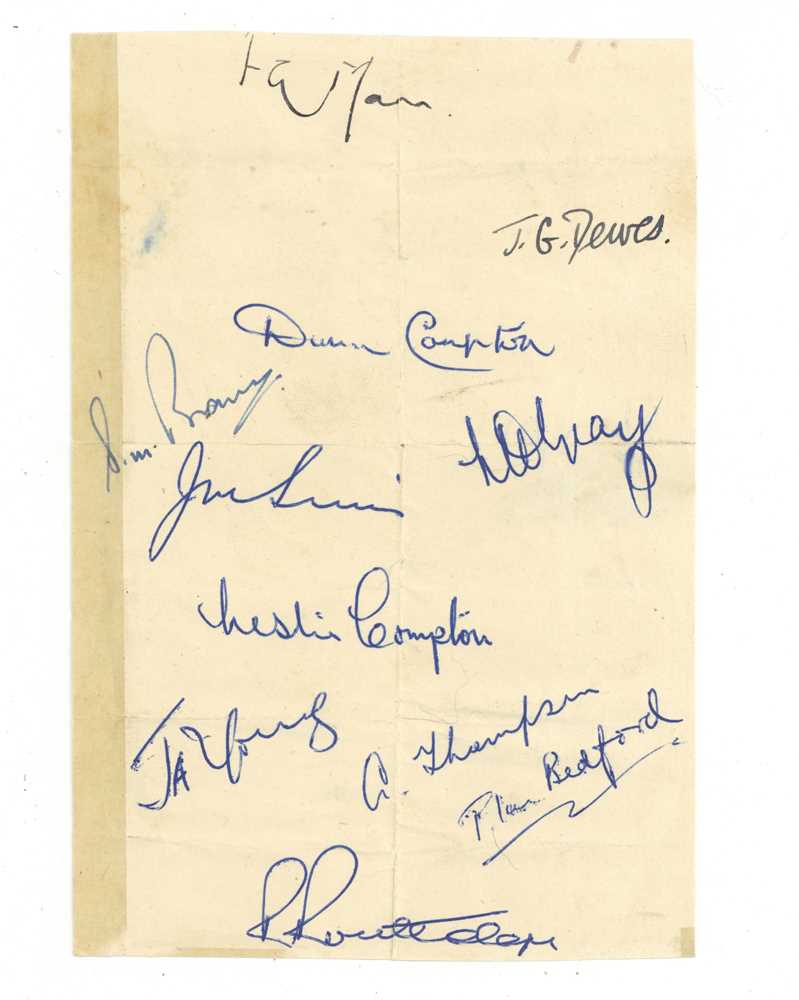 F G Mann.
J. G. Dewes.
Denis Compton
S. m. Brown.
L H Gray
Jim Sims
Leslie Compton
J A Young
A. Thompson
P. Ian Bedford
R Routledge